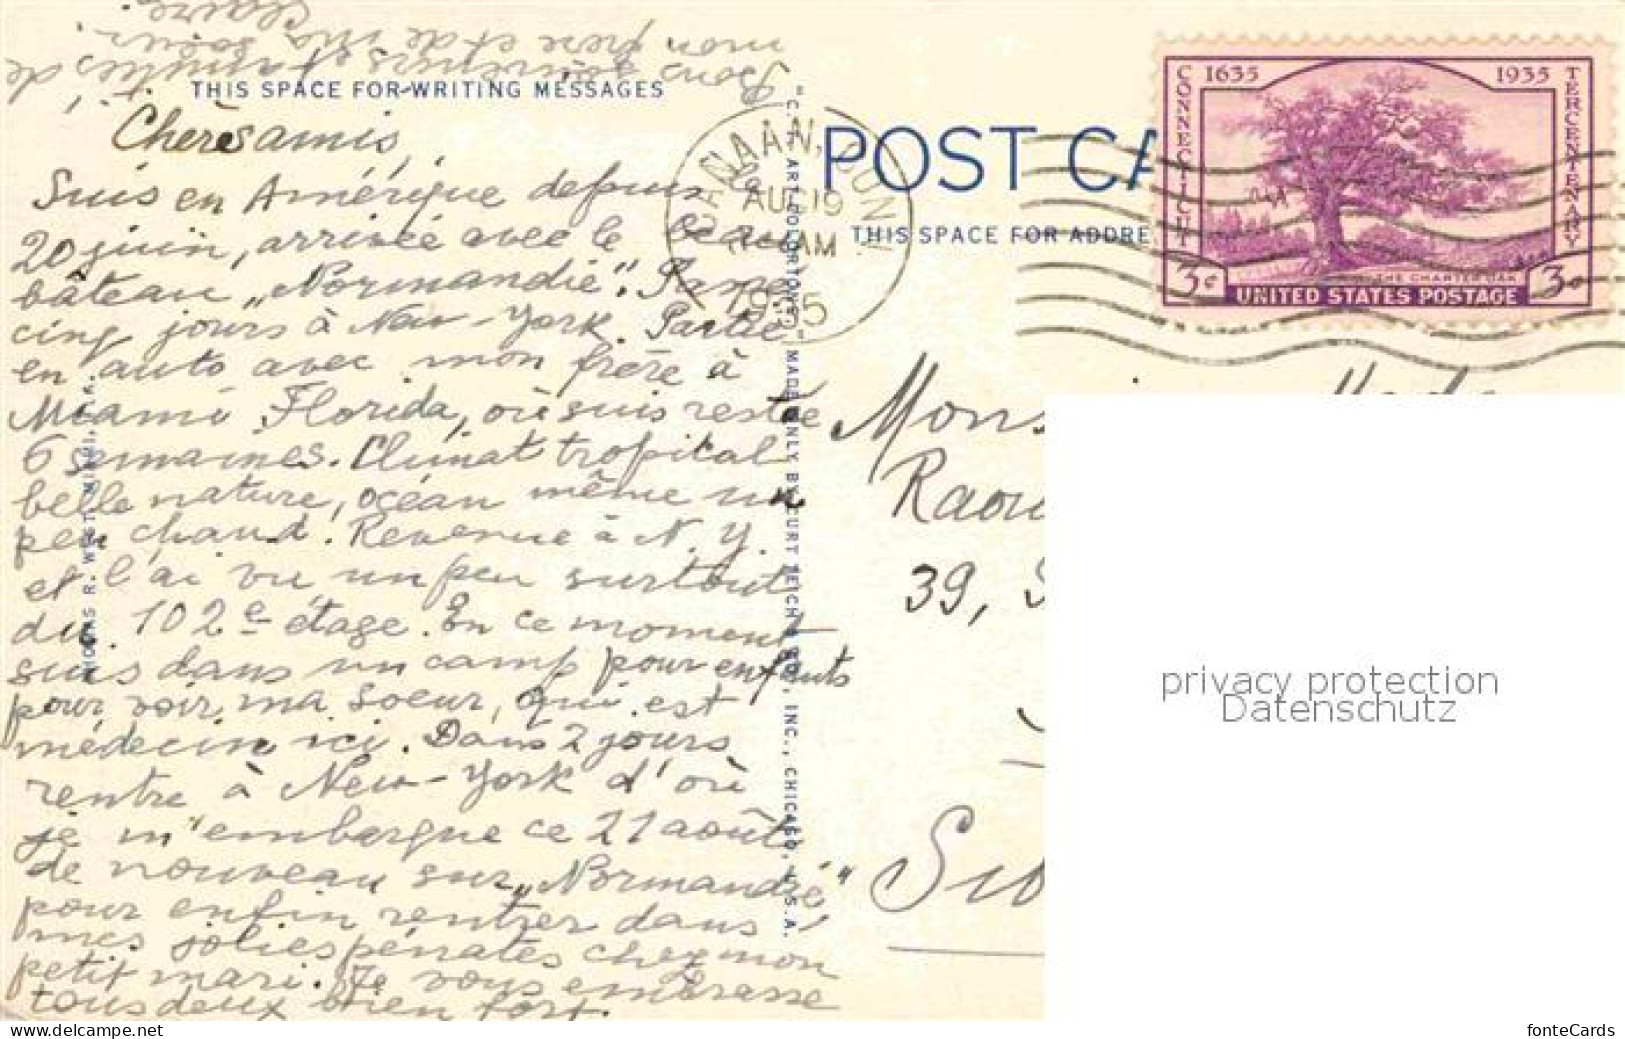 Bons souvenirs et amitiés, de
mon frère et de ma soeur
Claire
THIS SPACE FOR WRITING MESSAGES
Cherès amis,
Suis en Amérique depuis le
20 juin, arrivée avec le beau
bâteau „Normandie". Passé
cinq jours à New-York. Partie
en auto avec mon frère à
Miami, Florida, où suis restée
6 semaines. Climat tropical
belle nature, océan même un
peu chaud. Revenue à N.Y.
et l'ai vu un peu surtout
du 102e étage. En ce moment
suis dans un camp pour enfants
pour voir ma soeur, qui est
médecin ici. Dans 2 jours
rentre à New-York d'où
je m'embarque ce 21 août
de nouveau sur „Normandie",
pour enfin rentrer dans
mes jolies pénates chez mon
petit mari. Je vous embrasse
tous deux bien fort.
"C. T. ART-COLORTONE" MADE ONLY BY CURT TEICH & CO., INC., CHICAGO, U.S.A.
CANAAN, CONN
AUG 19
AM
1935
POST CA
THIS SPACE FOR ADDRE
CONNECTICUT
1635
1935
TERCENTENARY
THE CHARTER OAK
3¢
UNITED STATES POSTAGE
3¢
Mons
Raou
39,
privacy protection
Datenschutz
www.delcampe.net
fonteCards